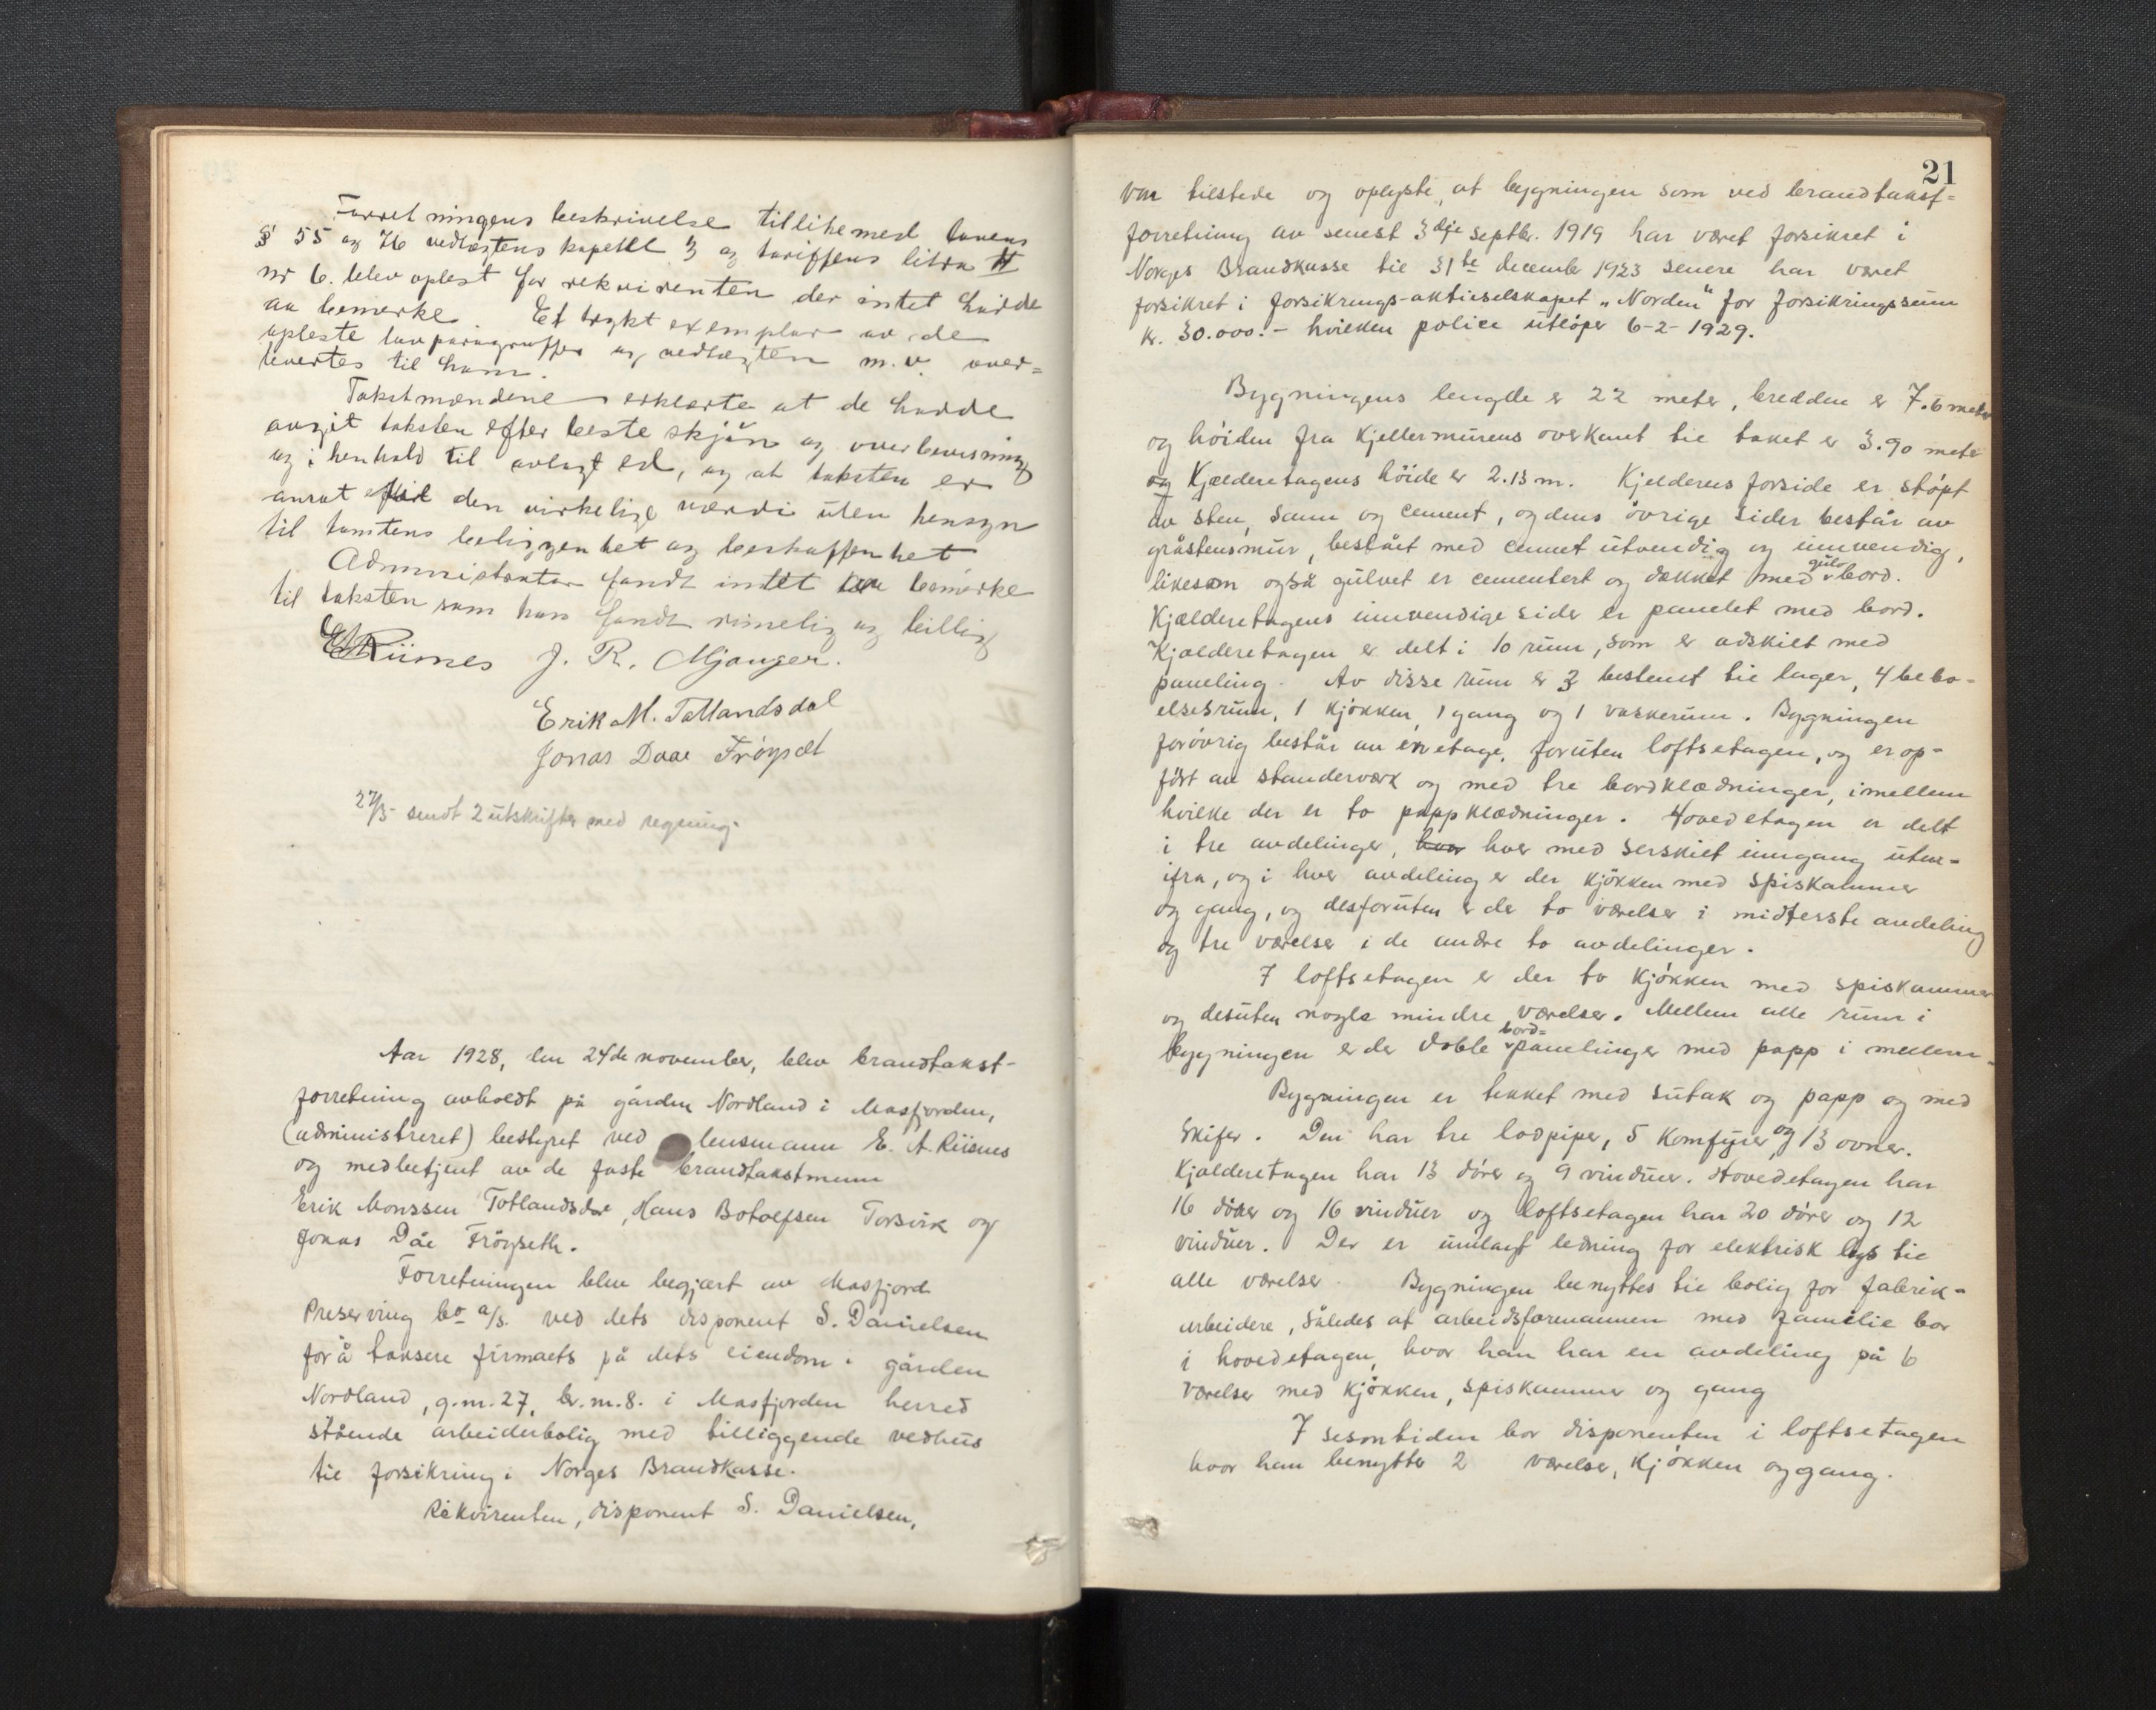 Forretningens beskrivelse tillikemed lovens
§ 55 og 76 vedtægtens kapetel 3 og tariffens litra H
nr 6. blev oplest for rekvirenten der intet hadde
aa bemerke. Et trykt exemplar av de
opleste lovparagraffer og vedtægten m.v. over=
levertes til ham.
Takstmændene erklærte at de hadde
avgit taksten efter beste skjön og overbevisning
og i henhold til avlagt ed, og at taksten er
ansat efter den virkelige værdi uten hensyn
til tomtens beliggenhet og beskaffenhet
Administrator fandt intet aa bemerke
til taksten som han fandt rimelig og billig
EARiisnes J. R. Mjanger.
Erik M. Totlandsdal
Jonas Daae Fröyset
27/5- sendt 2 utskrifter med regning.
Aar 1928, den 24de november, blev brandtakst-
forretning avholdt på gården Nordland i Masfjorden,
(administreret) bestyret ved lensmann E. A. Riisnes
og medbetjent av de faste brandtakstmenn
Erik Monssen Totlandsdal, Hans Botolfsen Torsvik og
Jonas Dåe Fröyseth.
Forretningen blev begjært av Masfjord
Preserving Co a/s. ved dets disponent S. Danielsen
for å taksere firmaets på dets eiendom i gården
Nordland, g.nr. 27, br.nr. 8. i Masfjorden herred
stående arbeiderbolig med tilliggende vedhus
til forsikring i Norges Brandkasse.
Rekvirenten, disponent S. Danielsen,
21
var tilstede og oplyste, at bygningen som ved brandtakst=
forretning av senest 3dje septbr. 1919 har været forsikret i
Norges Brandkasse til 31te december 1923 senere har været
forsikret i forsikrings-aktieselskapet "Norden" for forsikringssum
kr. 30.000.- hvilken police utlöper 6-2-1929.
Bygningens lengde er 22 meter, bredden er 7.6 meter
og höiden fra kjellermurens overkant til taket er 3.90 meter
og Kjælderetagens höide er 2.13 m. Kjelderens forside er stöpt
av sten, sann og cement, og dens övrige sider består av
gråstensmur, beslått med cement utvendig og innvendig,
likesom også gulvet er cementert og dækket med gulvbord.
Kjælderetagens innvendige sider er panelet med bord.
Kjælderetagen er delt i 10 rum, som er adskilt med
paneling. Av disse rum er 3 bestemt til lager, 4 bebo-
elsesrum, 1 kjökken, 1 gang og 1 vaskerum. Bygningen
forövrig består av én etage, foruten loftsetagen, og er op-
fört av standerværk og med tre bordklædninger, imellem
hvilke der er to pappklædninger. Hovedetagen er delt
i tre avdelinger, hvor hver med særskilt inngang uten-
ifra, og i hver avdeling er der kjökken med spiskammer
og gang, og desforuten er der to værelser i midterste avdeling
og tre værelser i de andre to avdelinger.
I loftsetagen er der to kjökken med spiskammer
og desuten nogle mindre værelser. Mellem alle rum i
bygningen er der doble bord=panelinger med papp i mellem.
Bygningen er tekket med sutak og papp og med
skifer. Den har tre lodpiper, 5 komfyrer og 13 ovner.
Kjælderetagen har 13 dörer og 9 vinduer. Hovedetagen har
16 dörer og 16 vinduer og loftsetagen har 20 dörer og 12
vinduer. Der er innlagt ledning for elektrisk lys til
alle værelser. Bygningen benyttes til bolig for fabrik-
arbeidere, således at arbeidsformannen med familie bor
i hovedetagen, hvor han har en avdeling på 6
værelser med kjökken, spiskammer og gang
I sesontiden bor disponenten i loftsetagen
hvor han benytter 2 værelser, kjökken og gang.